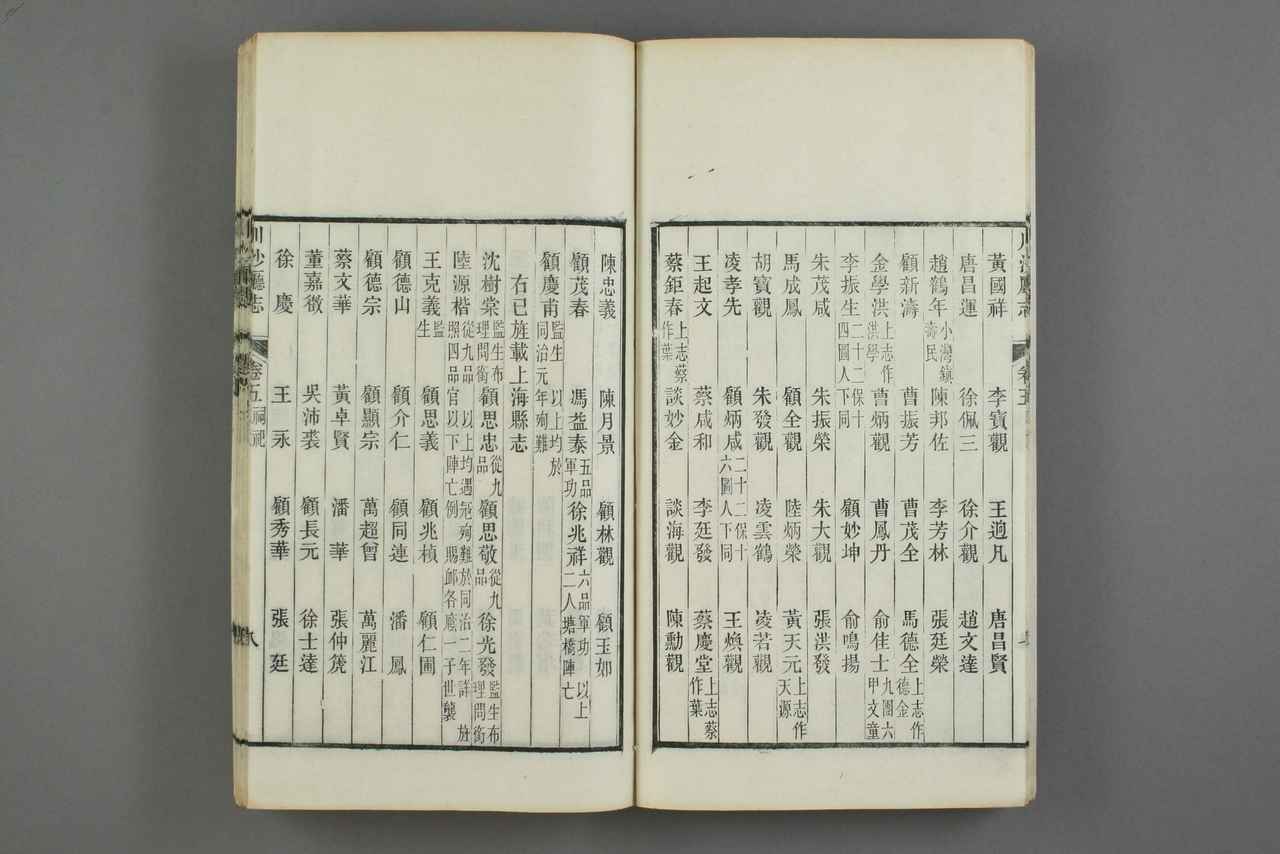 川沙廳志
卷五
黃國祥 李寶觀 王適凡 唐昌賢
唐昌運 徐佩三 徐介觀 趙文達
趙鶴年小灣鎮壽民 陳邦佐 李芳林 張廷榮
顧新濤 曹振芳 曹茂全 馬德全上志作德金
金學洪上志作洪學 曹炳觀 曹鳳丹 俞佳士九團六甲文童
李振生二十二保十四圖人下同 顧妙坤 俞鳴揚
朱茂咸 朱振榮 朱大觀 張洪發
馬成鳳 顧全觀 陸炳榮 黃天元上志作天源
胡寶觀 朱發觀 凌雲鶴 凌若觀
凌孝先 顧炳咸二十二保十六圖人下同 王煥觀
王起文 蔡咸和 李廷發 蔡慶堂上志蔡作葉
蔡鉅春上志蔡作葉 談妙金 談海觀 陳勳觀
陳忠義 陳月景 顧林觀 顧玉如
顧茂春 馮益泰五品軍功 徐兆祥六品軍功 以上二人塘橋陣亡
顧慶甫監生 以上均於同治元年殉難
右已旌載上海縣志
沈樹棠監生布理問銜 顧思忠從九品 顧思敬從九品 徐光發監生布理問銜
陸源楷從九品 以上均遇寇殉難於同治二年詳 旌照四品官以下陣亡例 賜卹各廕一子世襲
王克義監生 顧思義 顧兆楨 顧仁圃
顧德山 顧介仁 顧同連 潘鳳
顧德宗 顧顯宗 萬超曾 萬麗江
蔡文華 黃卓賢 潘華 張仲箎
董嘉徵 吳沛裘 顧長元 徐士達
徐慶 王永 顧秀華 張廷
川沙廳志
卷五祠祀
八